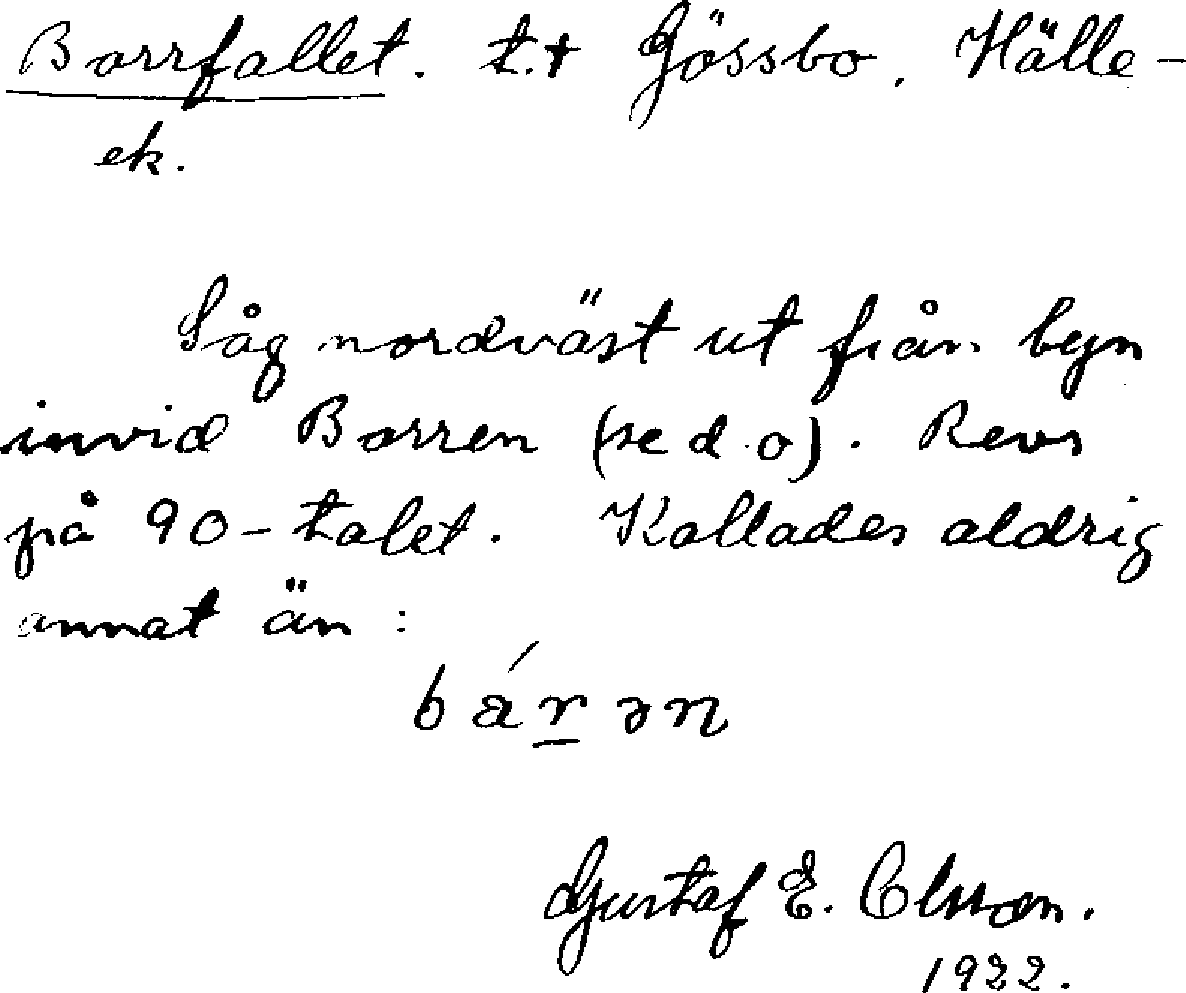 Barrfallet. t.t Gössbo. Hälle-
ek.
Låg nordväst ut från byn
invid Barren (se d.o). Revs
på 90-talet. Kallades aldrig
annat än:
bár̲ən
Gustaf E. Olsson.
1922.